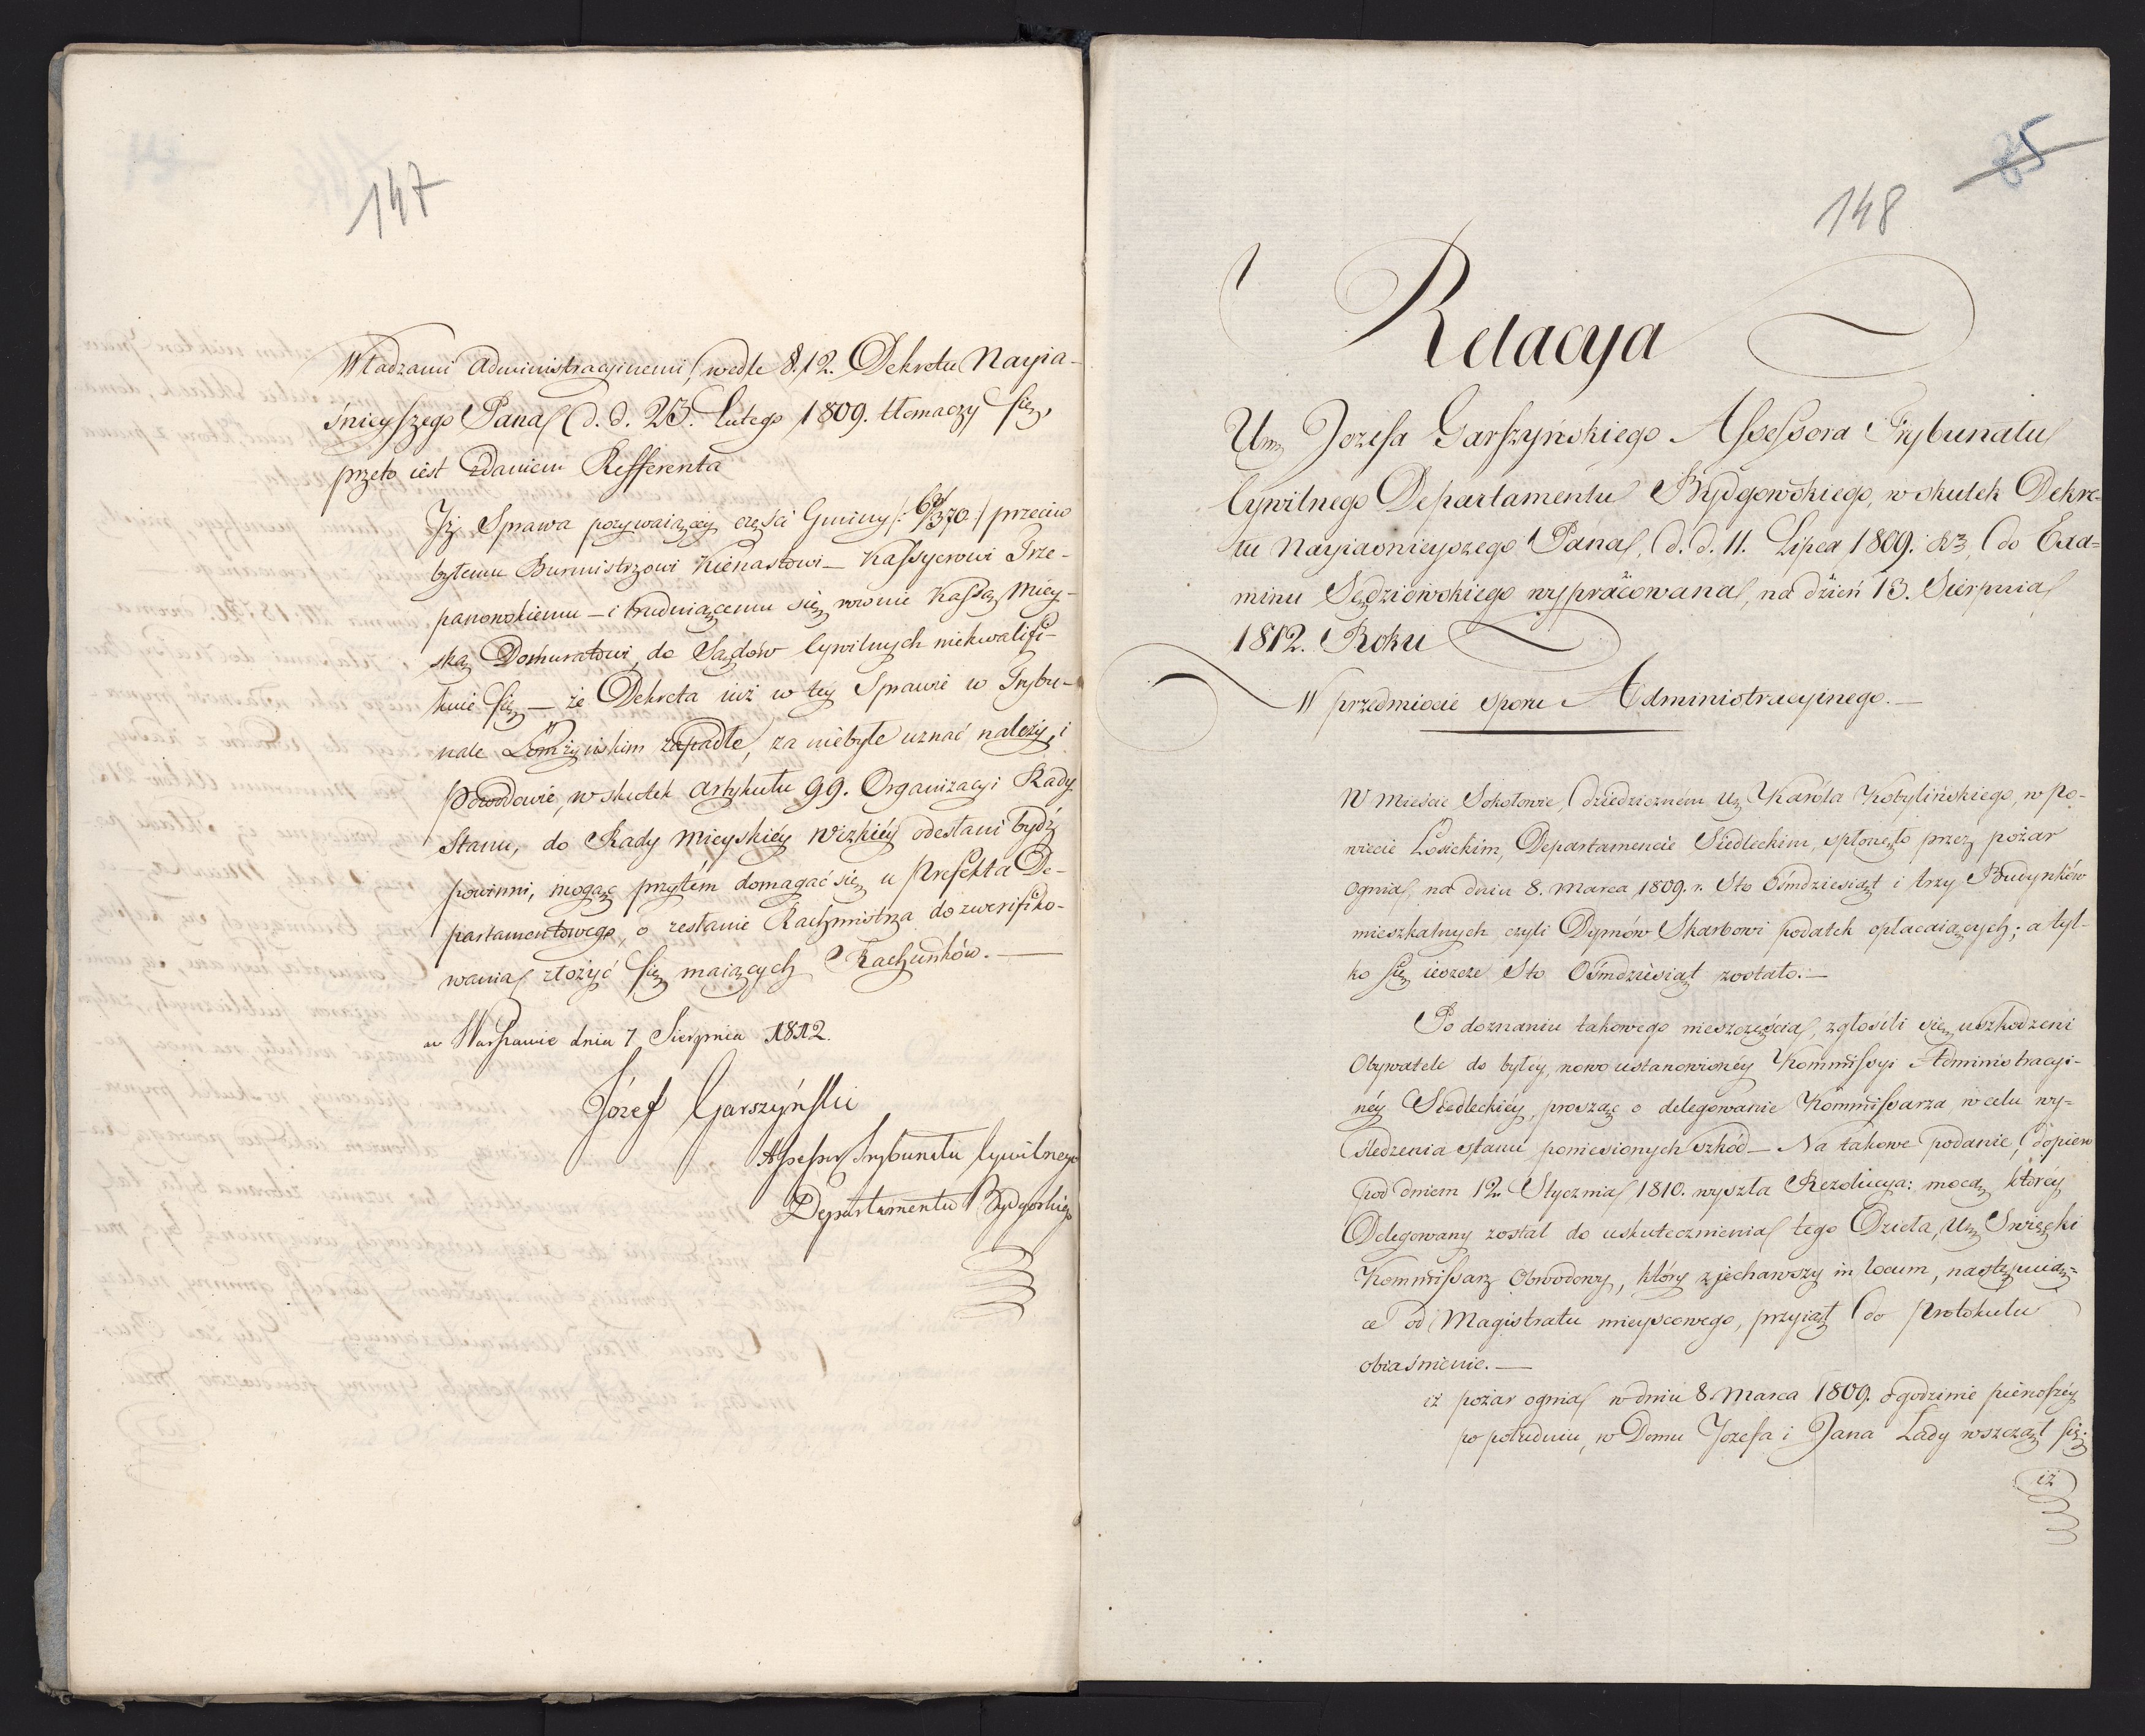 147
Władzami Administracyinemi, wedle §. 12. Dekretu Nayia-
śnieyszego Pana d. d. 23. Lutego 1809. tłomaczy się,
przeto iest zdaniem Refferenta
Iż Sprawa pozywaiącey części Gminy /: 61/370 :/ przeciw
byłemu Burmistrzowi Kienastowi — Kassyerowi Trze-
panowskiemu — i trudniącemu się rownie Kassą Miey-
ską Domuratowi, do Sądów Cywilnych niekwalifi-
kuie się — że Dekreta iuż w tey Sprawie w Trybu-
nale Łomżyńskim zapadłe, za niebyłe uznać należy, i
Powodowie, w skutek Artykułu 99. Organizacyi Rady
Stanu, do Rady Mieyskiéy Wizkiéy odesłani bydź
powinni, mogąc przytém domagać się u Prefekta De-
partamentowego, o zesłanie Rachmistrza do zweryfiko-
wania złożyć się maiących Rachunków. —
w Warszawie dnia 7 Sierpnia 1812.
Józef Garszyński
Assessor Trybunału Cywilnego
Departamentu Bydgoskiego
85
148
Relacya
Ur. Jozefa Garszyńskiego Assessora Trybunału
Cywilnego Departamentu Bydgowskiego, w skutek Dekre-
tu Nayiasnieyszego Pana, d. d. 11. Lipca 1809. r. do Exa-
minu Sędziowskiego wypracowana, na dzień 13. Sierpnia
1812. Roku
W przedmiocie sporu Administracyinego. —
W Mieście Sokołowie, dziedziczném Ur. Karóla Kobylińskiego, w Po-
wiecie Łosickim, Departamencie Siedleckim, spłonęło przez pożar
ognia, na dniu 8. Marca 1809. r. Sto Ośmdziesiąt i trzy Budynków
mieszkalnych czyli Dymów Skarbowi podatek opłacaiących; a tyl-
ko się ieszcze Sto Ośmdziesiąt zostało. —
Po doznaniu takowego nieszczęścia, zgłosili się uszkodzeni
Obywatele do byłéy, nowo ustanowionéy Kommissyi Administracyi-
néy Siedleckiéy, prosząc o delegowanie Kommissarza, w celu wy-
śledzenia stanu poniesionych szkód — Na takowe podanie, dopiero
pod dniem 12. Stycznia 1810. wyszła Rezolucya: mocą któréy
Delegowany został do uskutecznienia tego Dzieła, Ur. Swięcki
Kommissarz Obwodowy, który zjechawszy in locum, następuią-
ce od Magistratu mieyscowego, przyiął do Protokułu
obiaśnienie. —
iż pożar ognia w dniu 8. Marca 1809. o godzinie pierwszéy
po południu, w Domu Jozefa i Jana Lady wszczął się;
iż